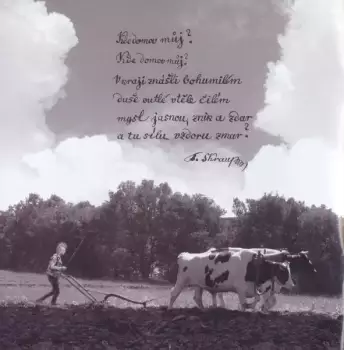 Kde domov můj?
Kde domov můj?
V kraji znáš-li bohumilém
duše outlé v těle čilém
mysl jasnou, znik a zdar
a tu sílu vzdoru zmar?
F. Škroup